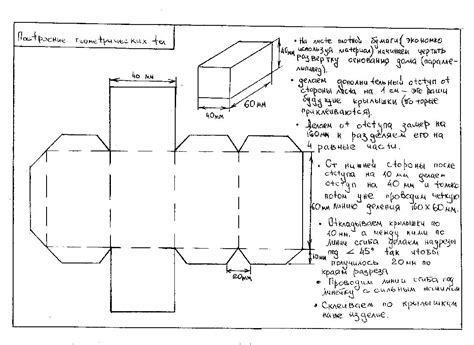 Построение геометрических тел
40 мм
45мм
60мм
40мм
60мм
10мм
20мм
• на листе плотной бумаги (экономно
используй материал) начинаем чертить
развертку основания дома (паралле-
лепипед).
• делаем дополнительный отступ от
стороны листа на 1 см – это ваши
будущие крылышки (которые
приклеиваются).
• делаем от отступа замер на
160мм и разделяем его на
4 равные части.
• От нижней стороны после
отступа на 10 мм делаем
отступ на 40 мм и только
потом уже проводим четкую
линию деления 160х60мм.
• Откладываем крылышки по
10 мм, а между ними по
линии сгиба делаем надрезы
под < 45° так чтобы
получилось 20 мм по
краям разреза
• Проводим линии сгиба под
линейку с сильным нажимом
• Склеиваем по крылышкам
наше изделие.